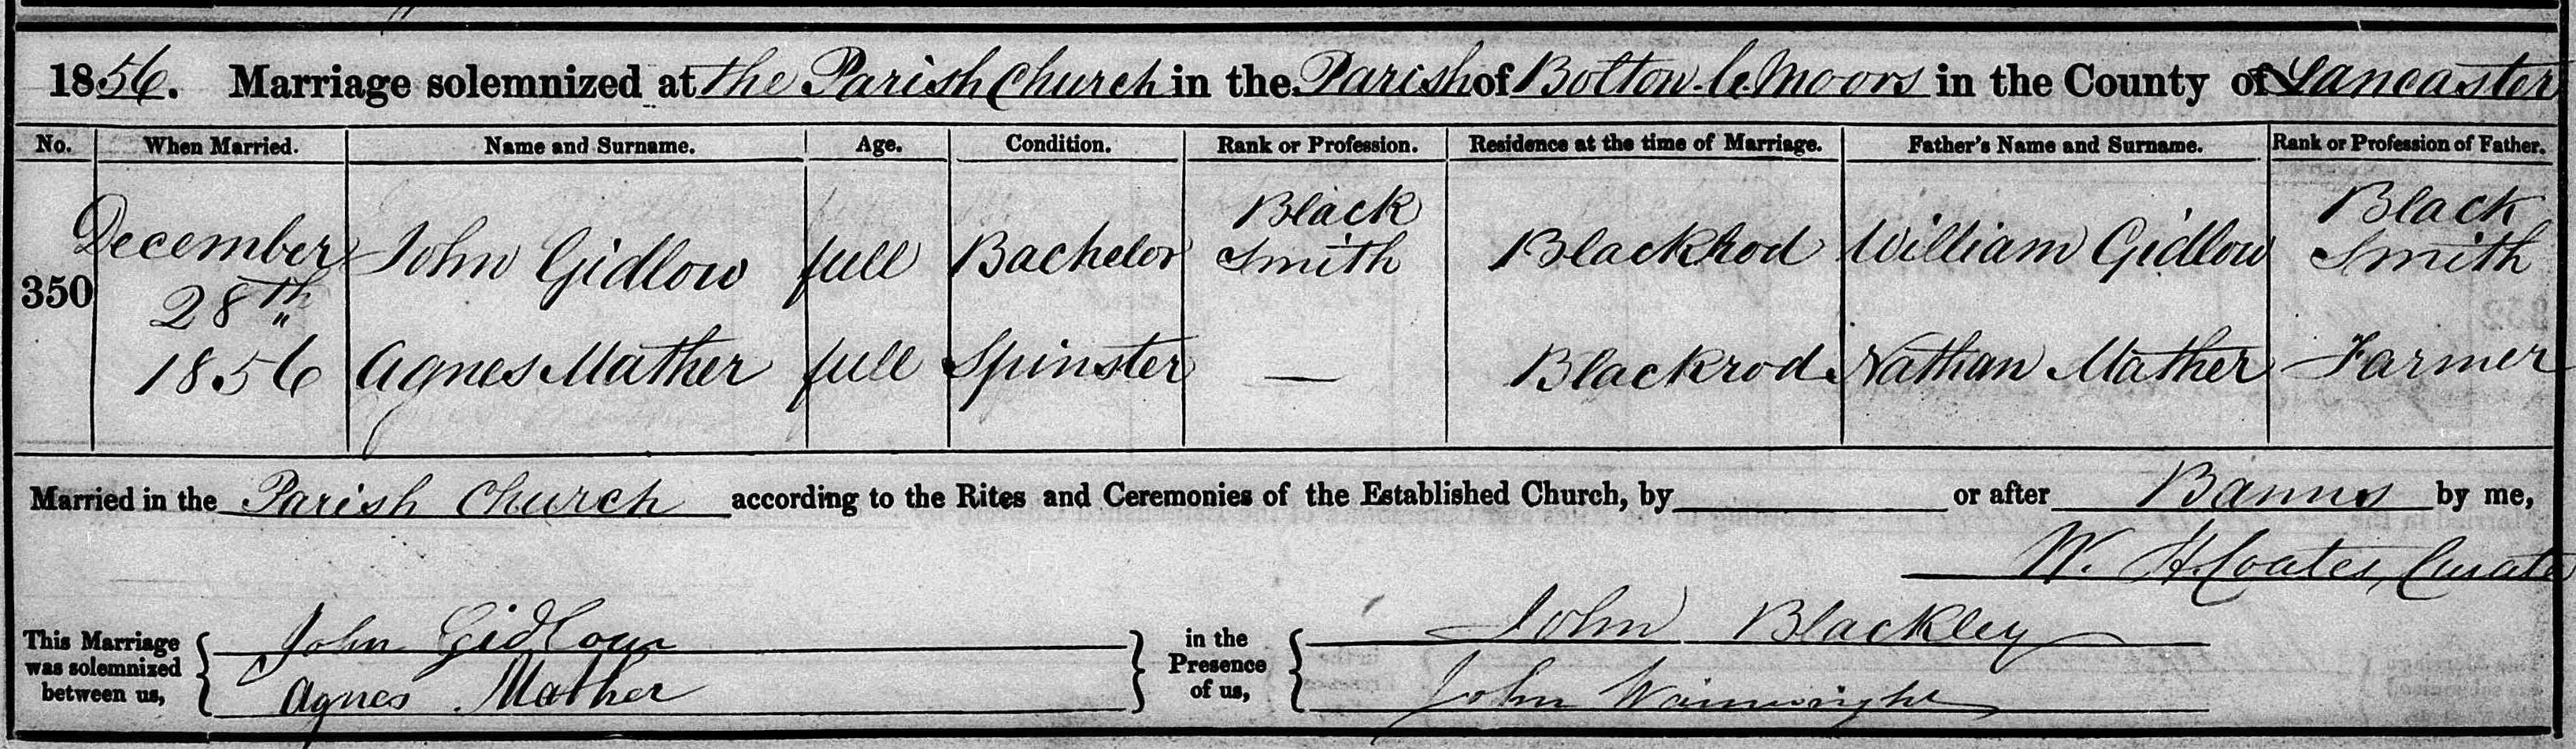 1856. Marriage solemnized at the Parish Church in the Parish of Bolton-le-Moors in the County of Lancaster
No. When Married. Name and Surname. Age. Condition. Rank or Profession. Residence at the time of Marriage. Father's Name and Surname. Rank or Profession of Father.
350
December 28th 1856
John Gidlow full Bachelor Black Smith Blackrod William Gidlow Black Smith
Agnes Mather full Spinster — Blackrod Nathan Mather Farmer
Married in the Parish Church according to the Rites and Ceremonies of the Established Church, by or after Banns by me,
W. H. Coates, Curate
This Marriage was solemnized between us,
John Gidlow
Agnes Mather
in the Presence of us,
John Blackley
John Wainwright